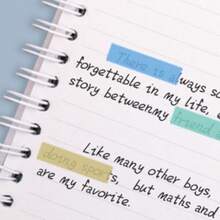 There is always so
forgettable in my life, a
story betweenmy friend
Like many other boys,
doing sports, but maths and
are my favorite.